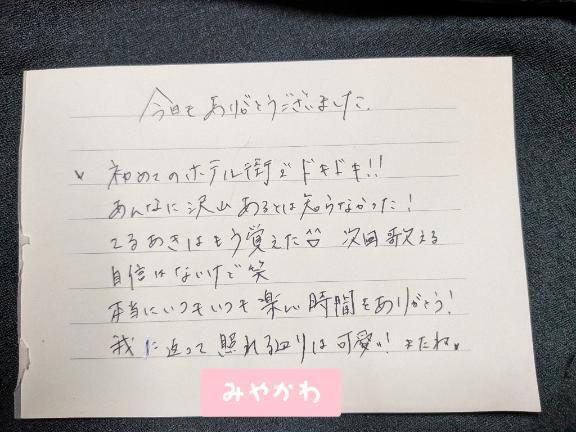 今日もありがとうございました
初めてのホテル街でドキドキ!!
あんなに沢山あるとは知らなかった!
てるあきはもう覚えた 次回歌える
自信はないけど笑
本当にいつもいつも楽しい時間をありがとう!
我に返って照れる辺りは可愛い!またね
みやかわ